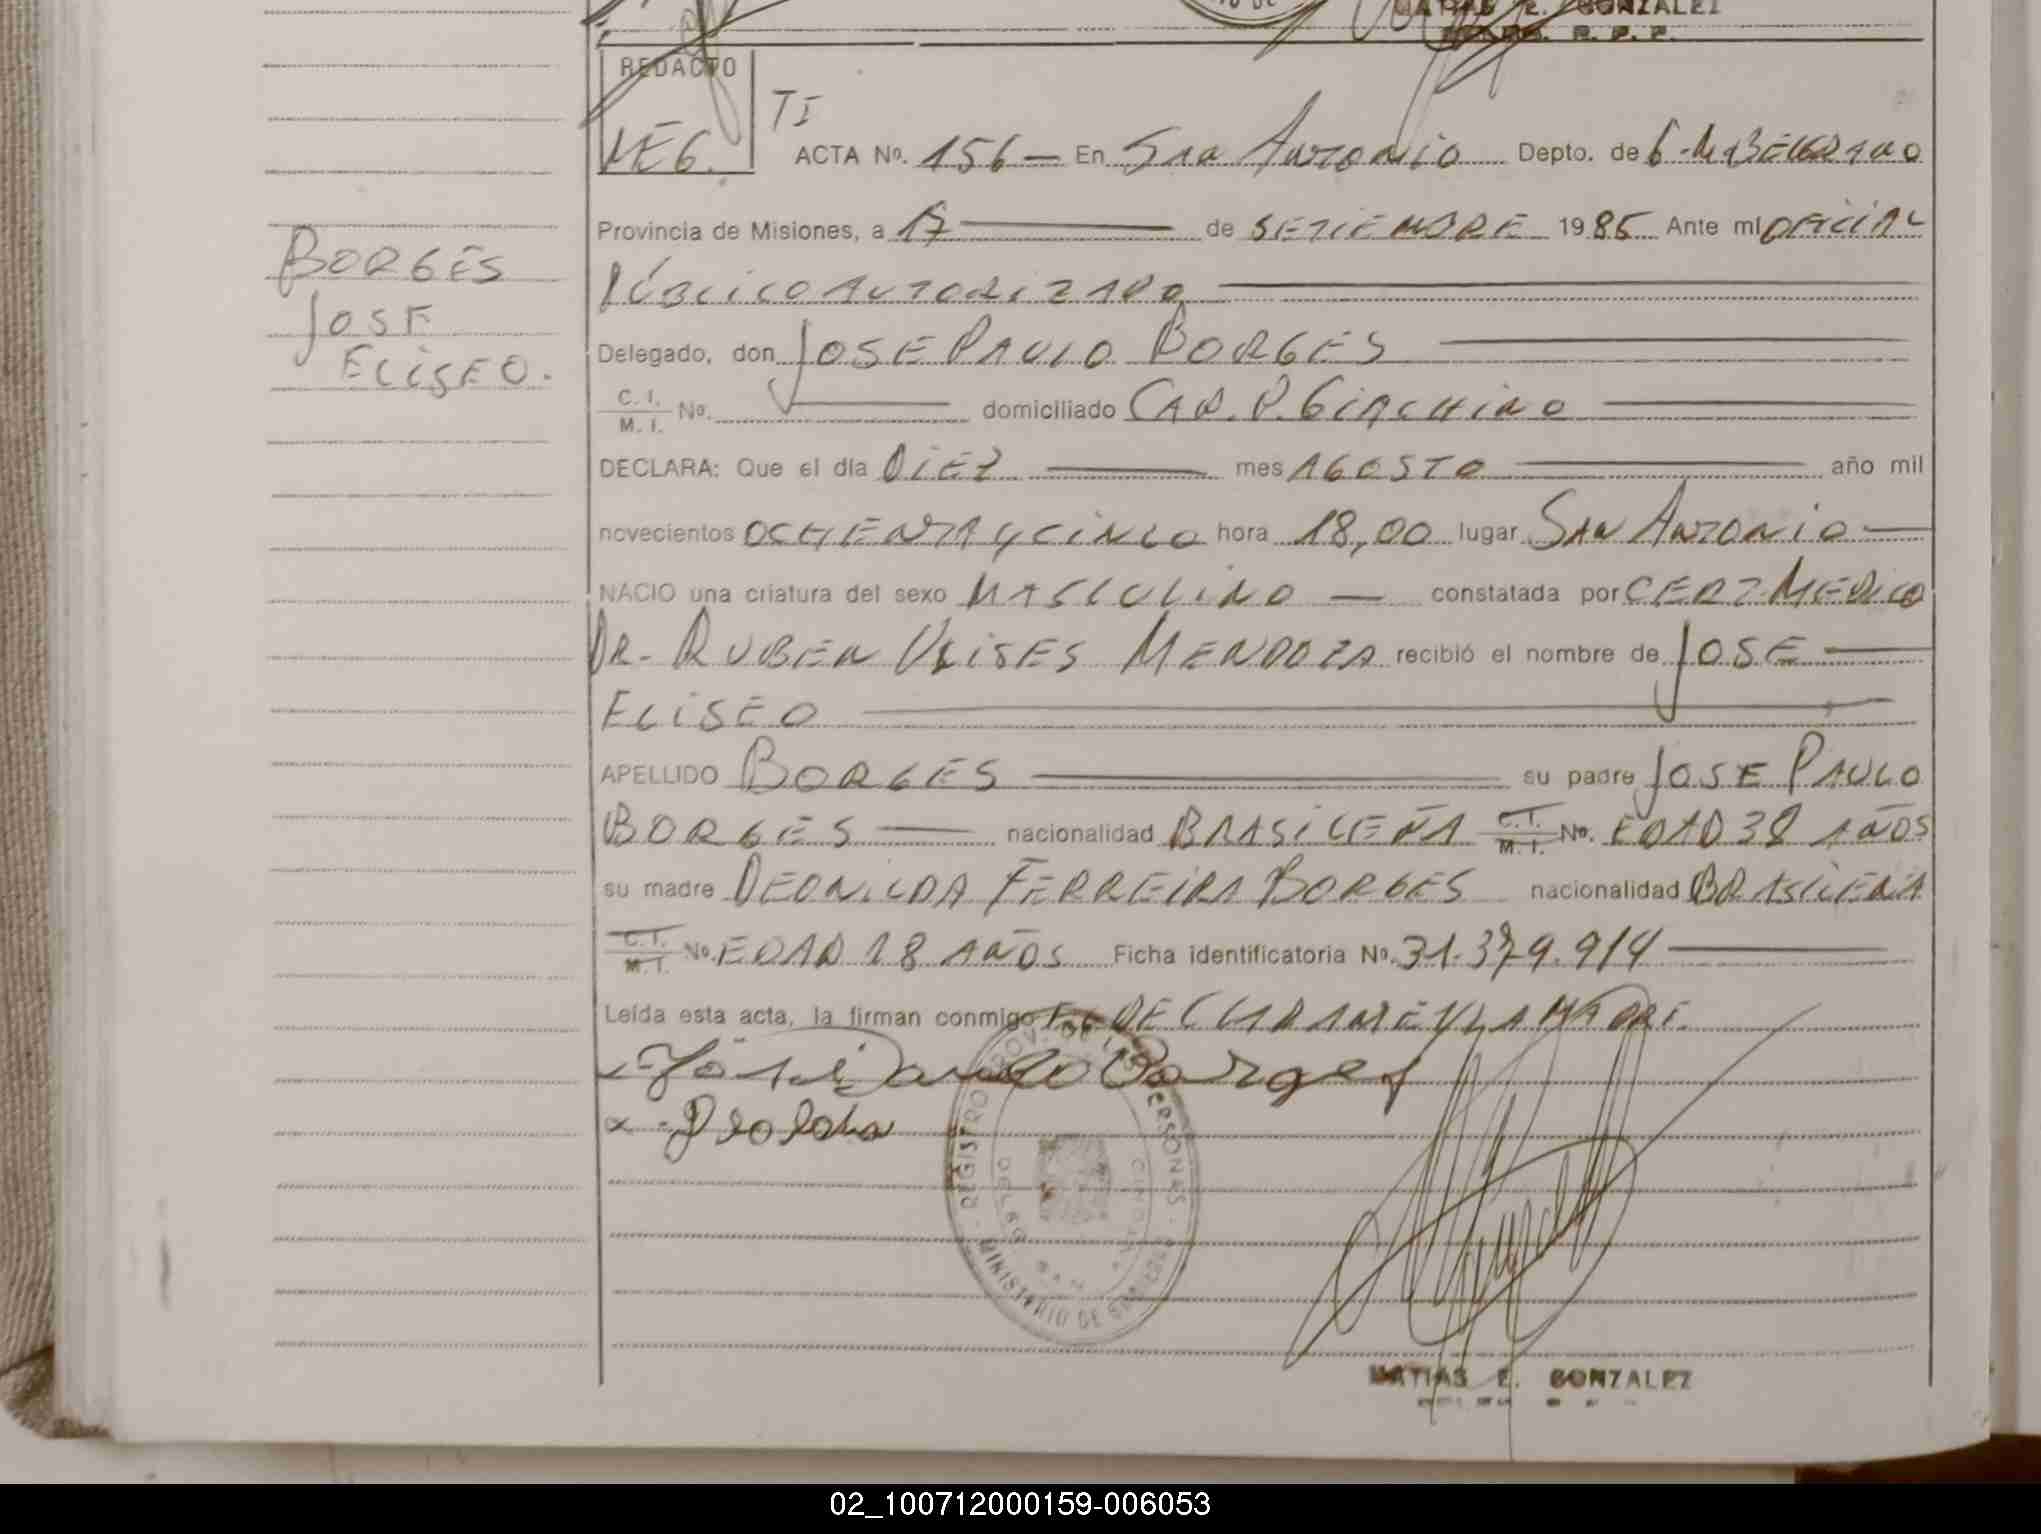 MATIAS E. GONZALEZ
REDACTO
MEG.
TI
ACTA Nº. 156 — En San Antonio Depto. de G. M. BELGRANO
Provincia de Misiones, a 17 — de SETIEMBRE 1985 Ante mí OFICIAL
PÚBLICO AUTORIZADO
BORGES
JOSE
ELISEO.
Delegado, don JOSE PAULO BORGES
C. I.
M. I. Nº. — domiciliado CAB. P. GIACHINO
DECLARA: Que el día DIEZ — mes AGOSTO — año mil
novecientos OCHENTA Y CINCO hora 18,00 lugar SAN ANTONIO —
NACIO una criatura del sexo MASCULINO — constatada por CERT. MEDICO
DR. RUBEN ULISES MENDOZA recibió el nombre de JOSE —
ELISEO
APELLIDO BORGES — su padre JOSE PAULO
BORGES — nacionalidad BRASILEÑA C. I. M. I. Nº. EDAD 38 AÑOS
su madre DEONILDA FERREIRA BORGES nacionalidad BRASILEÑA
C. I. M. I. Nº. EDAD 18 AÑOS Ficha identificatoria Nº. 31.379.914 —
Leída esta acta, la firman conmigo EL DECLARANTE Y LA MADRE.
José Paulo Borges
REGISTRO PROV. DE LAS PERSONAS
MINISTERIO DE
MATIAS E. GONZALEZ
02_100712000159-006053